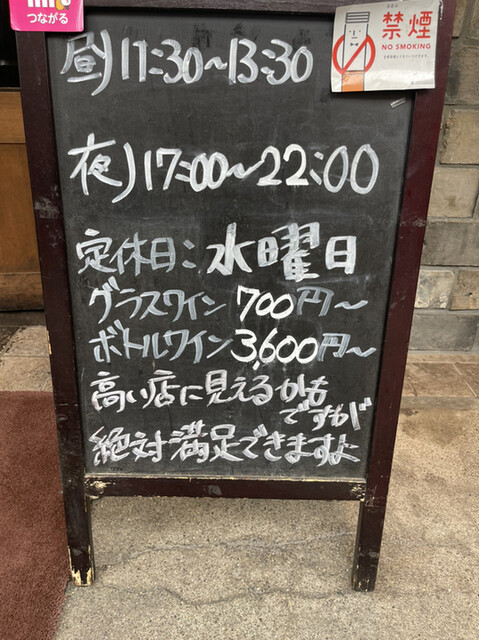 つながる
禁煙
NO SMOKING
昼)11:30~13:30
夜)17:00~22:00
定休日:水曜日
グラスワイン 700円~
ボトルワイン 3,600円~
高い店に見えるかも
ですもが
絶対満足できますよ